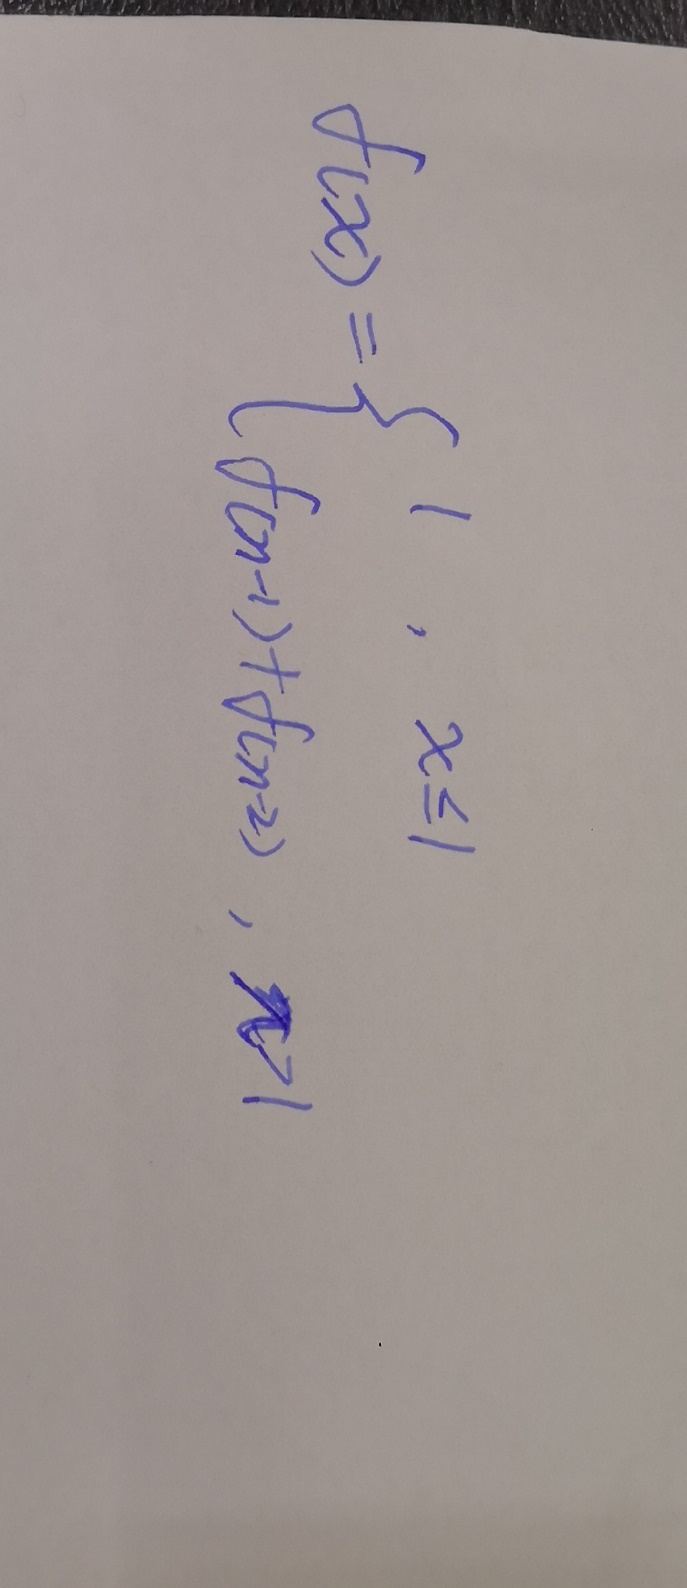 f(x) = { 1 , x≤1
f(x-1)+f(x-2) , x>1